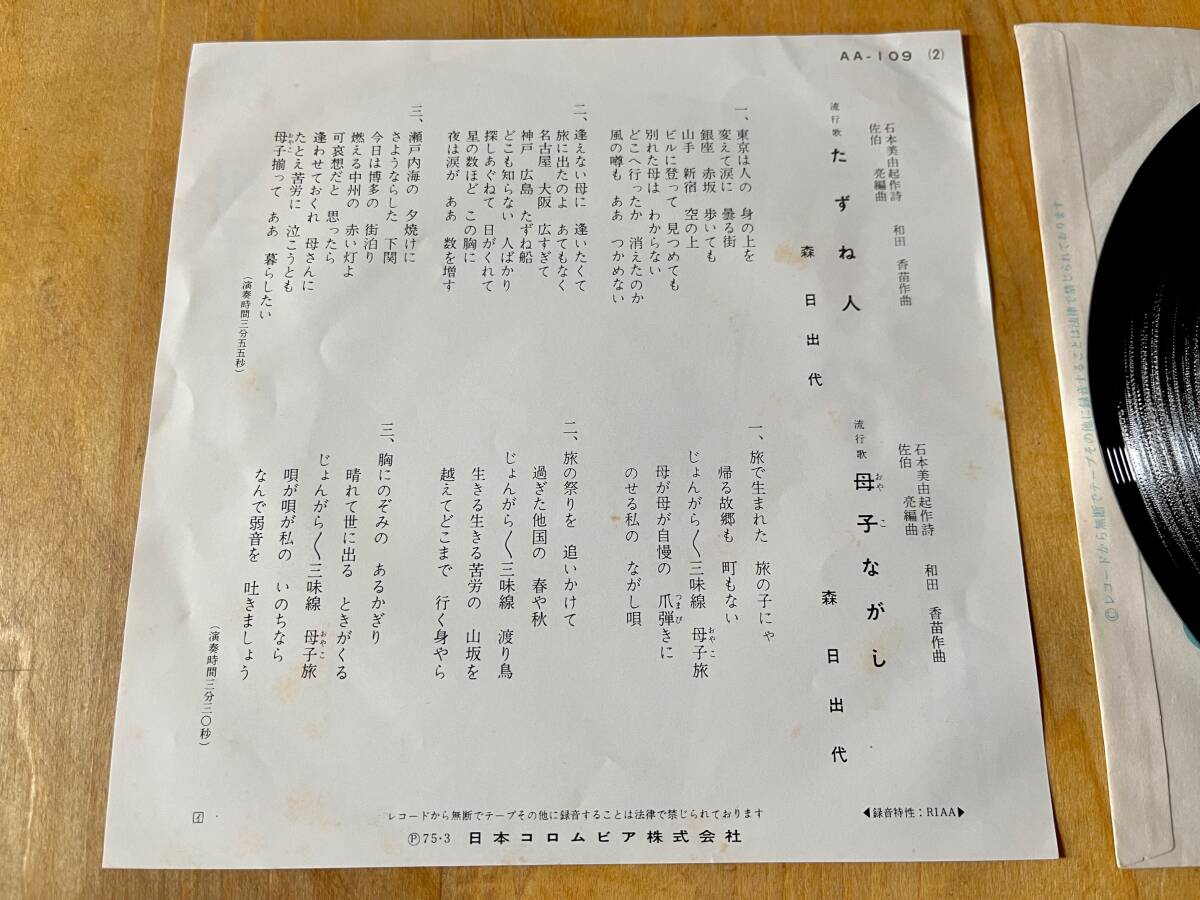 AA-109 (2)
石本美由起作詩
佐伯 亮編曲
和田 香苗作曲
流行歌 たずね人
森 日出代
一、東京は人の 身の上を
変えて涙に 曇る街
銀座 赤坂 歩いても
山手 新宿 空の上
ビルに登って 見つめても
別れた母は わからない
どこへ行ったか 消えたのか
風の噂も ああ つかめない
二、逢えない母に 逢いたくて
旅に出たのよ あてもなく
名古屋 大阪 広すぎて
神戸 広島 たずね船
どこも知らない 人ばかり
探しあぐねて 日がくれて
星の数ほど この胸に
夜は涙が ああ 数を増す
三、瀬戸内海の 夕焼けに
さようならした 下関
今日は博多の 街泊り
燃える中州の 赤い灯よ
可哀想だと 思ったら
逢わせておくれ 母さんに
たとえ苦労に 泣こうとも
母子揃って ああ 暮らしたい
おやこ
(演奏時間三分五五秒)
石本美由起作詩
佐伯 亮編曲
和田 香苗作曲
流行歌 母子ながし
おやこ
森 日出代
一、旅で生まれた 旅の子にゃ
帰る故郷も 町もない
じょんがら〳〵三味線 母子旅
おやこ
母が母が自慢の 爪弾きに
つまび
のせる私の ながし唄
二、旅の祭りを 追いかけて
過ぎた他国の 春や秋
じょんがら〳〵三味線 渡り鳥
生きる生きる苦労の 山坂を
越えてどこまで 行く身やら
三、胸にのぞみの あるかぎり
晴れて世に出る ときがくる
じょんがら〳〵三味線 母子旅
おやこ
唄が唄が私の いのちなら
なんで弱音を 吐きましょう
(演奏時間三分三〇秒)
レコードから無断でテープその他に録音することは法律で禁じられております
Ⓟ75・3 日本コロムビア株式会社
◀録音特性：RIAA▶
イ
Ⓒレコードから無断でテープその他に録音することは法律で禁じられております